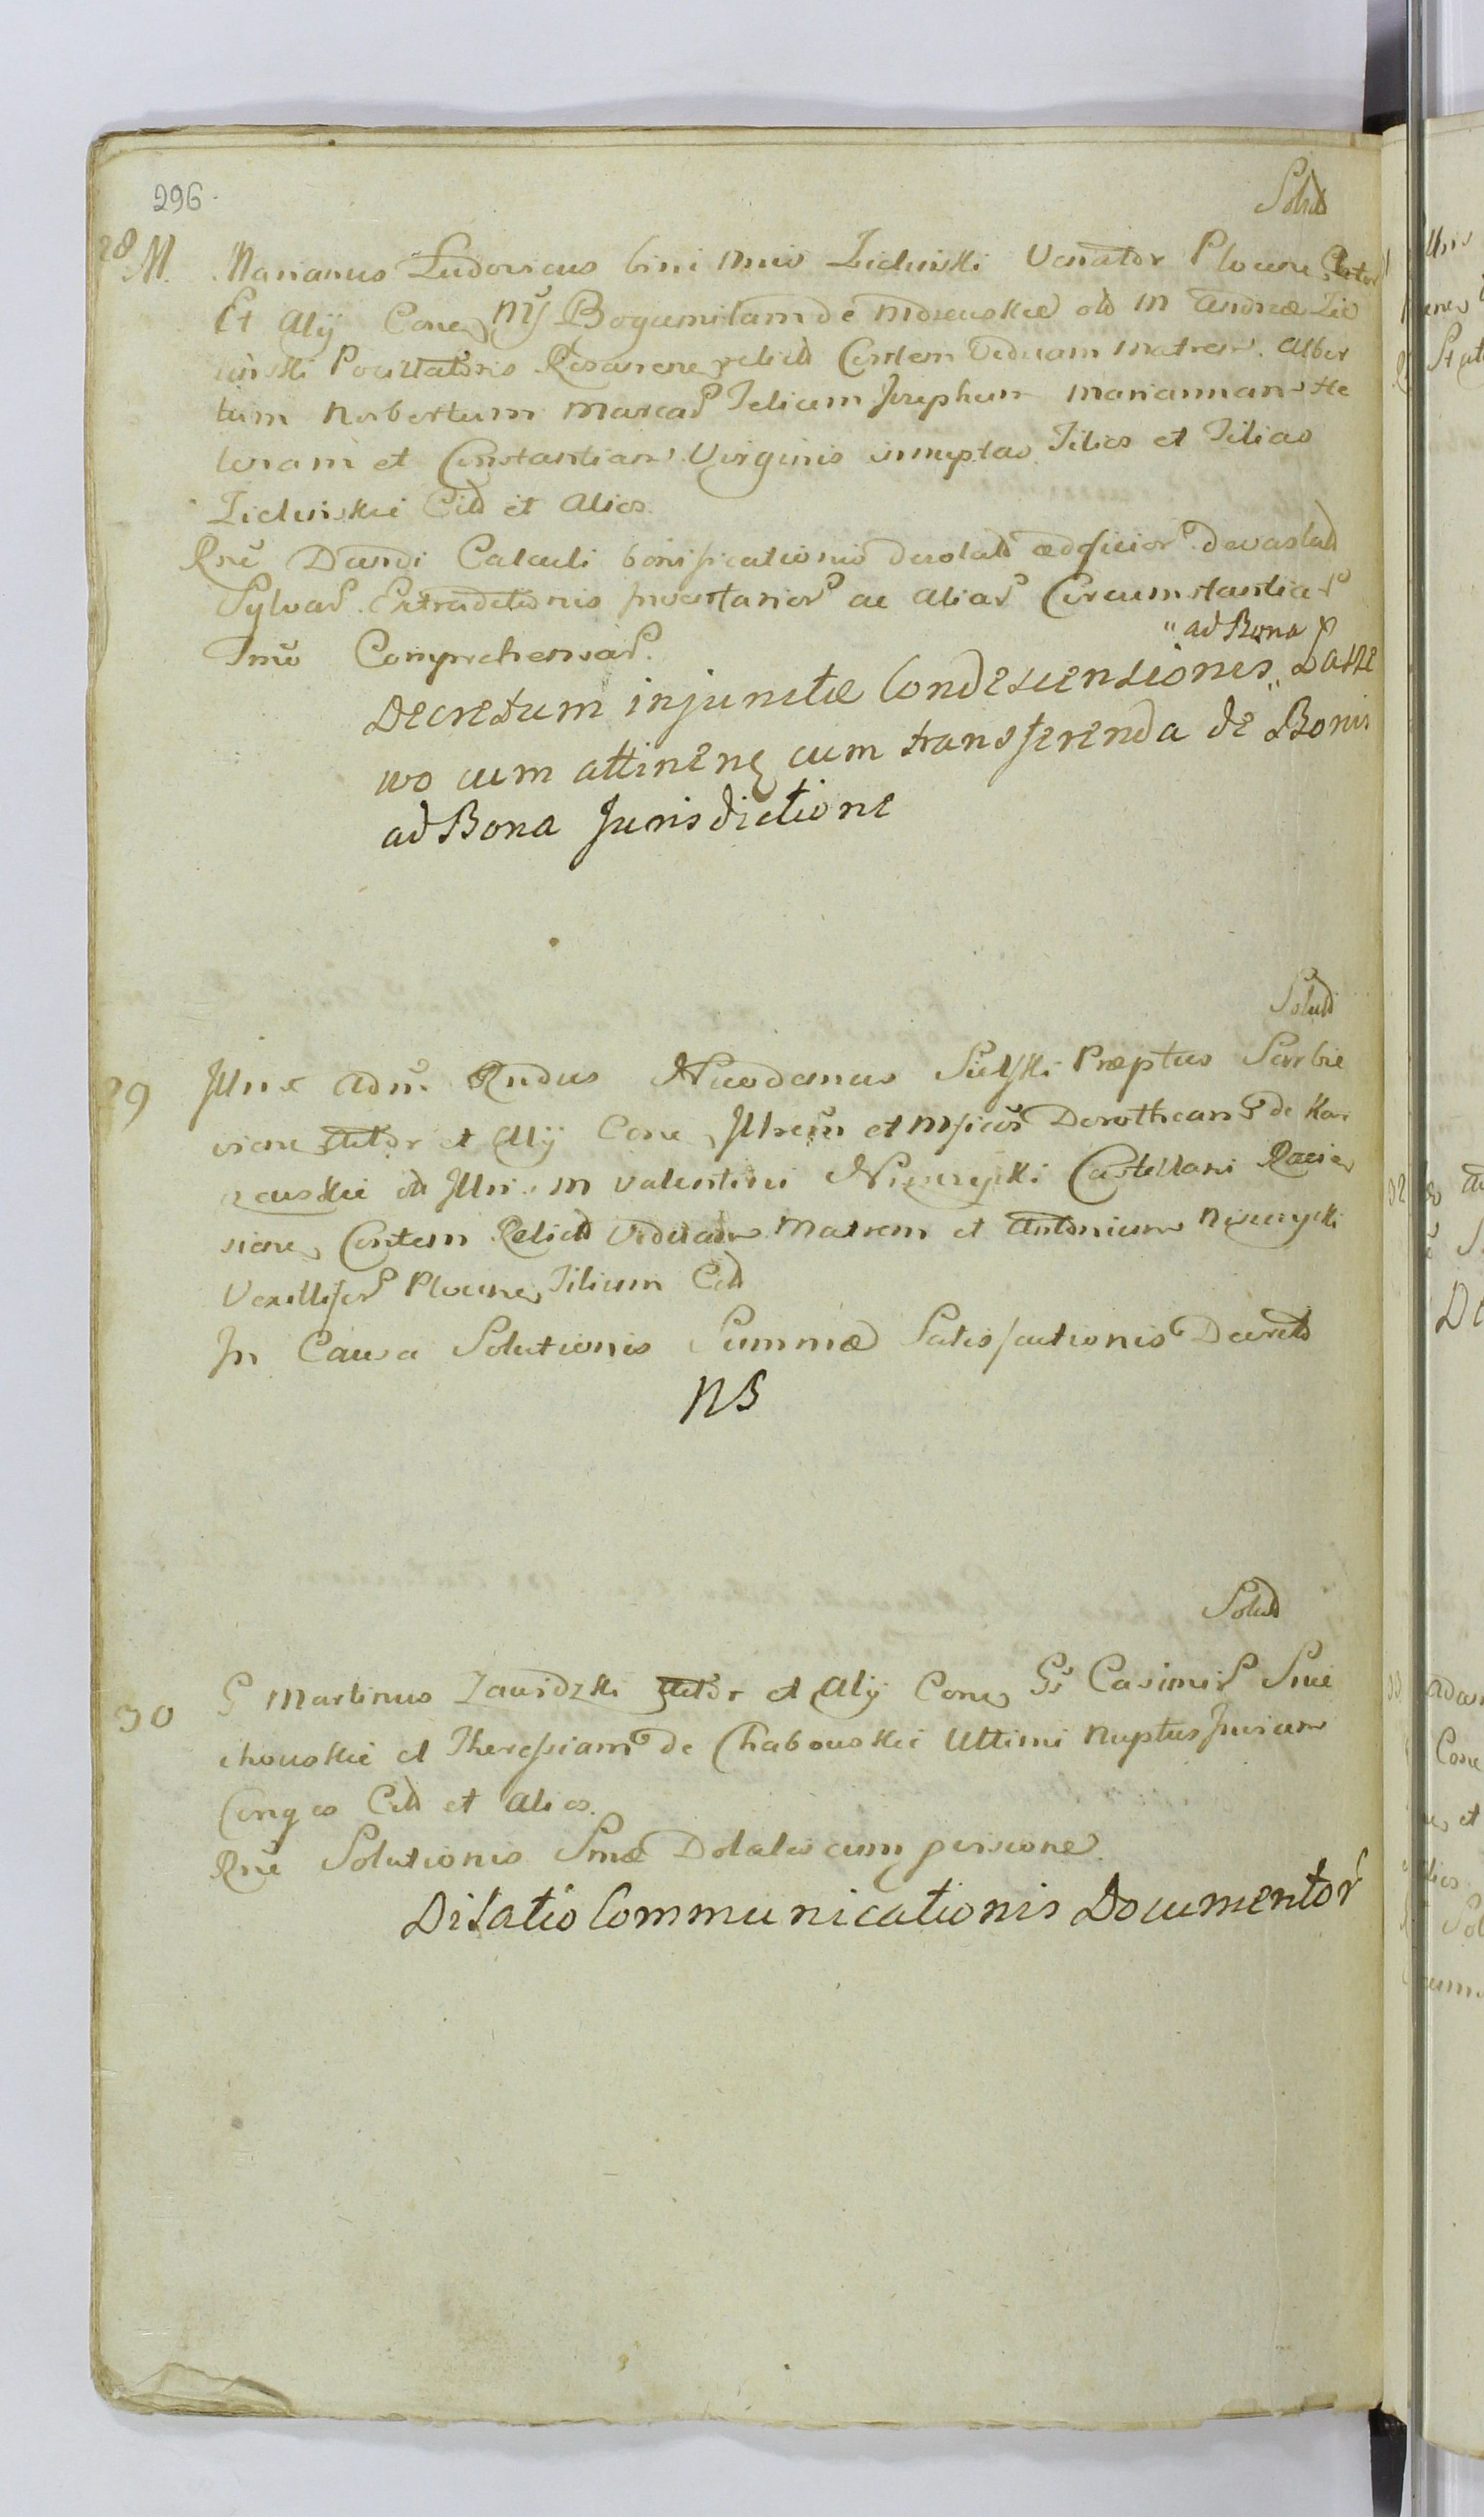 296
Solud
28 M. Marianus Ludovicus bini nmis Zieliński Venator Plocen Actor
Et Alij Cone MJ Bogumilam de Mdzeuskie od M Andreæ Zie
liński Pocillatoris Rosanene relictt Contem Viduam Matrem. Alber
tum Norbertum Marcar Felicem Josephum Mariannam He
lenam et Constantiam Virginis innuptas Filios et Filias
Zielinskie Citt et Alios.
Rne Dandi Calculi bonificationis desolatt ædificior devastatt
Sylvar. Extraditionis Inventarior ac aliar Circumstantiar
Tmo Comprehensar.
"ad Bona
Decretum injunctæ Condescensiones"
wo cum attinene cum transferenda de Bonis
ad Bona Jurisdictione
Solud
29 Illris Adm Rndus Nicodemus Præptus Serbie
Actor et Alij Cone Illrem et Mficam Dorotheam de Kar
Illri. M Valentini Niszczycki Castellani Racia
siene Contem Relictt Viduam Matrem et Antonium Niszczycki
Vexillifer Plocene Filium Citt
In Causa Solutionis Summæ Satisfactionis Decrett
NS
Solud
30 G Martinus Zawidzki Actor et Alij Cone Gs Casimir Smie
chouskie et Theresiam de Chabouskie Ultimi Nuptus Suicem
Conges Citt et Alios.
Rne Solutionis Smæ Dotalis cum pensione
Dilatio Communicationis Documentor